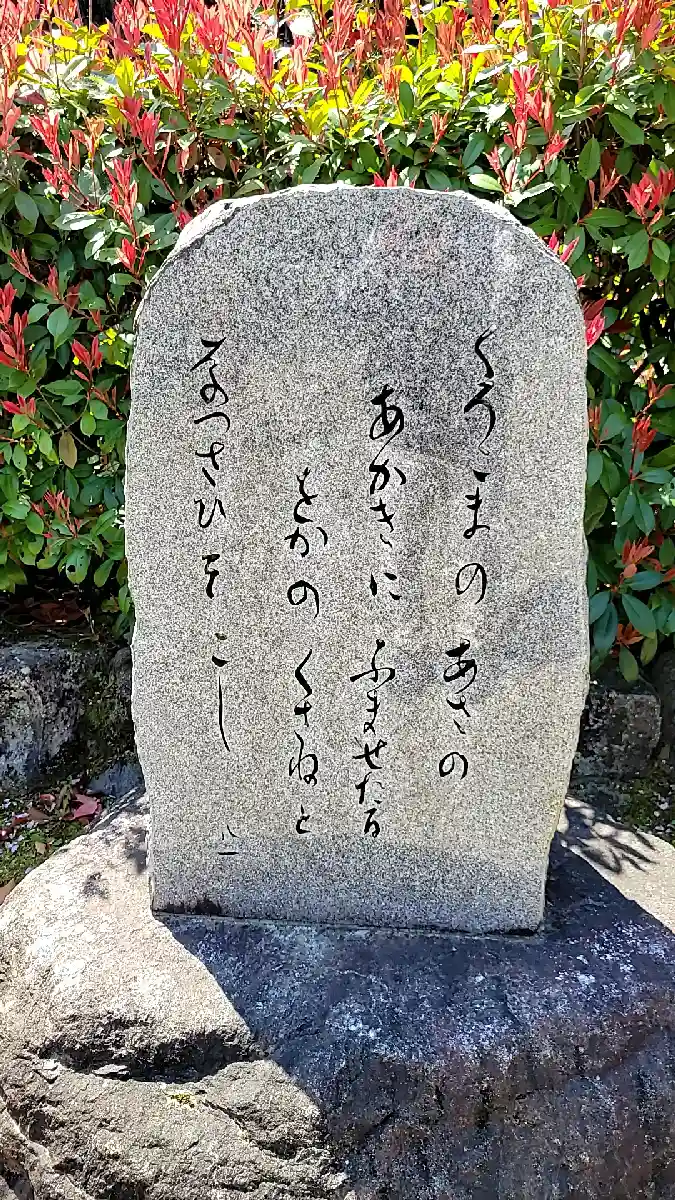 くろこまの あさの
あかきに ふませたる
をかの くさねと
なつさひそ こし
八一